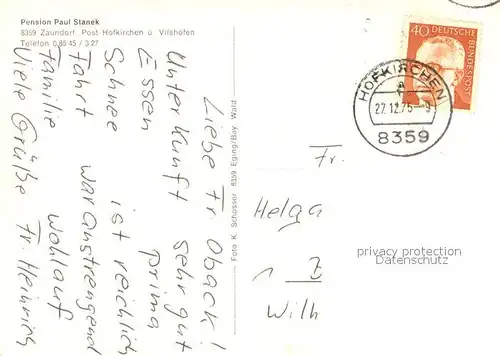 Pension Paul Stanek
8359 Zaundorf Post Hofkirchen ü. Vilshofen
Telefon 0 85 45 / 3 27
Liebe Fr Oback!
Unterkunft sehr gut
Essen prima
Schnee ist reichlich
Fahrt war anstrengend
Familie wohlauf
Viele Grüße Fr. Heinrich
Foto K. Schosser 8359 Eging/Bay. Wald
40 DEUTSCHE BUNDESPOST
HOFKIRCHEN
27.12.75-9
8359
Fr.
Helga
Z
Wilh
privacy protection
Datenschutz